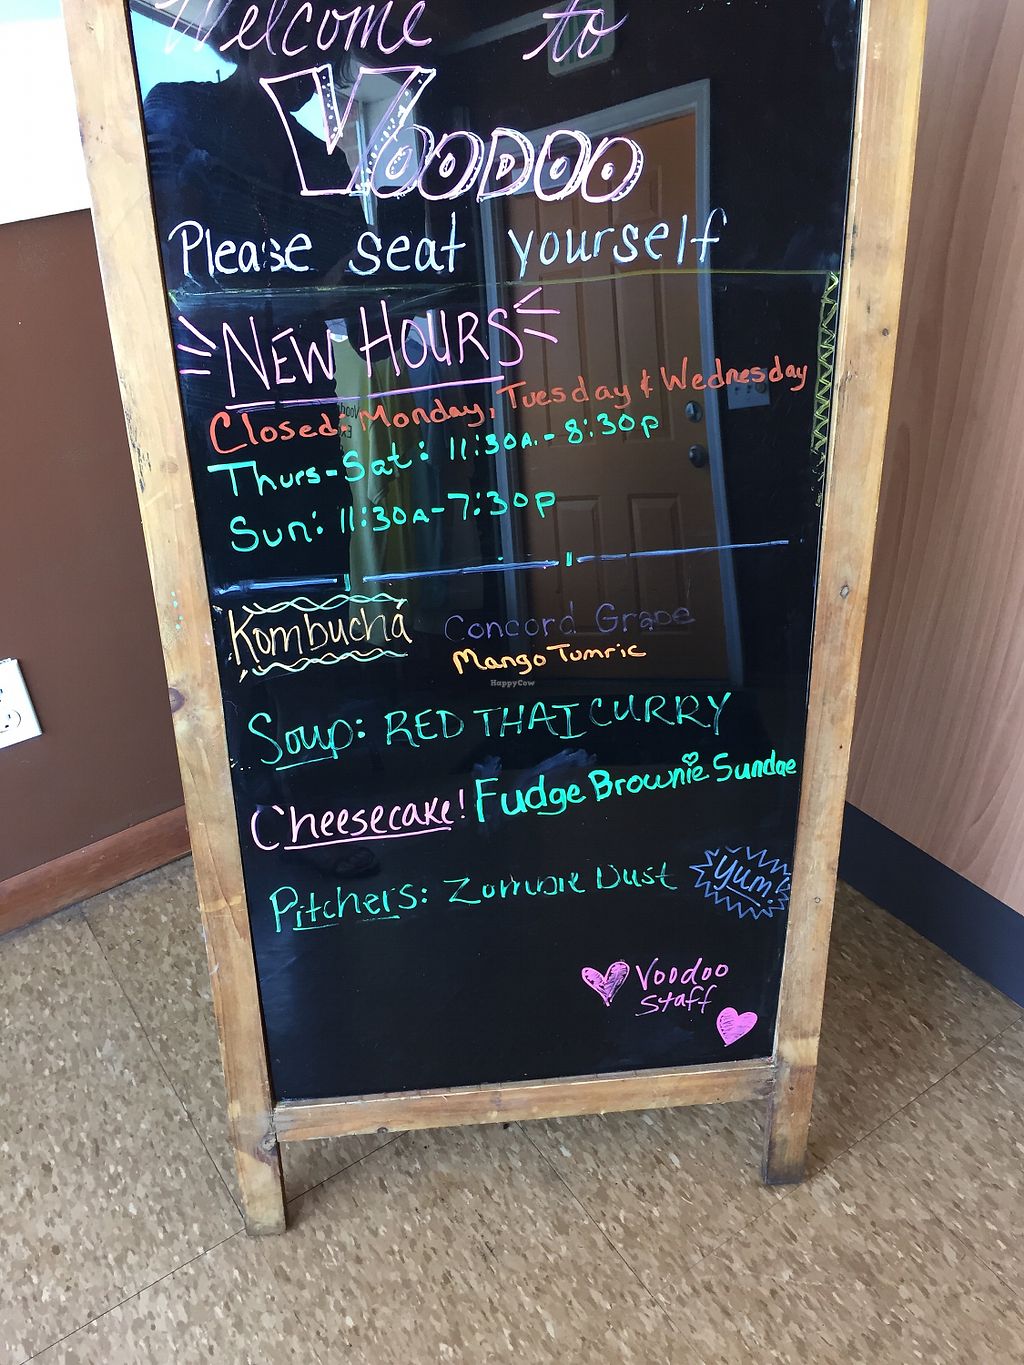 Welcome to
VOODOO
Please seat yourself
NEW HOURS
Closed: Monday, Tuesday & Wednesday
Thurs-Sat: 11:30A.-8:30P
Sun: 11:30A-7:30P
Kombucha Concord Grape
Mango Tumric
HappyCow
Soup: RED THAI CURRY
Cheesecake! Fudge Brownie Sundae
Pitchers: Zombie Dust Yum!
Voodoo
Staff